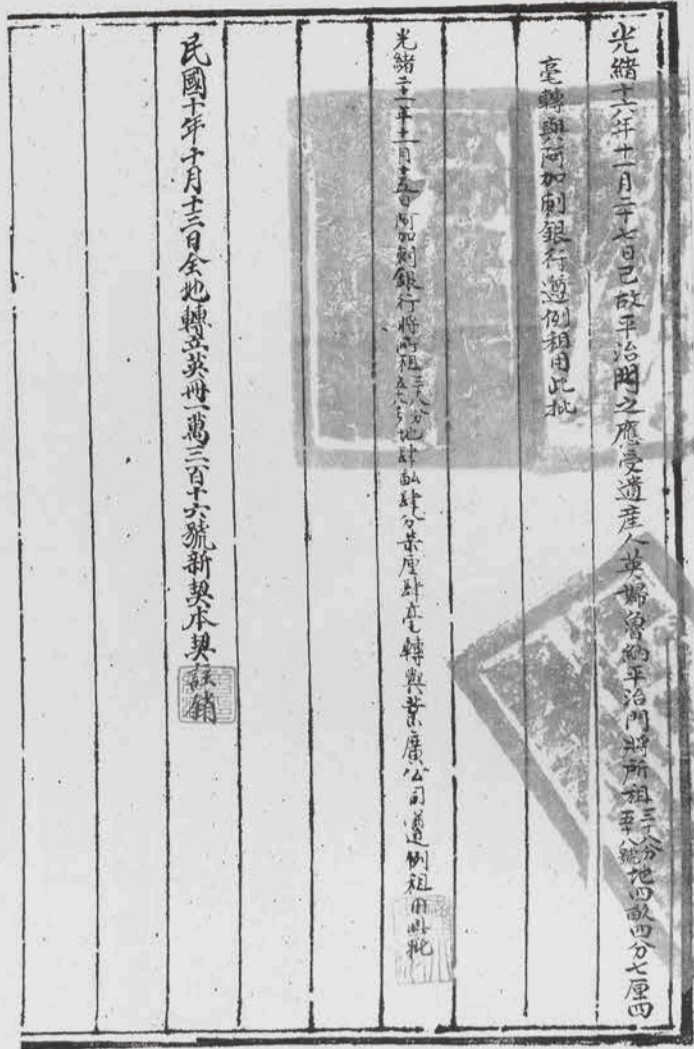 光緒十六年十一月二十七日已故平治門之應受遺產人英婦魯納平治門將所租三十八分五十八號地四畝四分七厘四
毫轉與阿加剌銀行遵例租用此批
光緒二十一年十二月十五日阿加剌銀行將所租三十八分五十八號地肆畝肆分柒厘肆毫轉與業廣公司遵例租用此批
民國十年十月十三日全地轉立英冊一萬三百十六號新契本契註銷